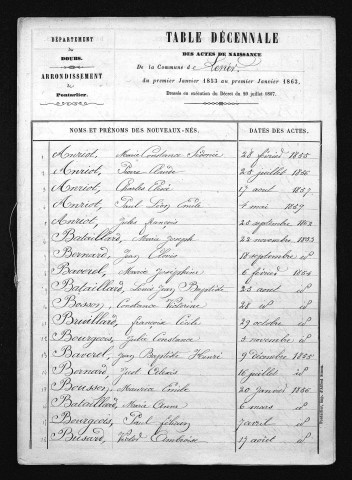 DÉPARTEMENT
du
DOUBS.
ARRONDISSEMENT
de
Pontarlier.
TABLE DÉCENNALE
DES ACTES DE NAISSANCE
De la Commune de
du premier Janvier 1853 au premier Janvier 1863,
Dressée en exécution du Décret du 20 juillet 1807.
NOMS ET PRÉNOMS DES NOUVEAUX-NÉS. DATES DES ACTES.
Anriot, Marie Constance 28 février 1855
Anriot, Pierre Claude 25 juillet 1856
Anriot, Charles 17 août 1857
Anriot, Paul Léon Emile 4 mai 1859
Anriot, Jules François 25 septembre 1862
Bataillard, Marie Joseph 22 novembre 1853
Bernard, Jean Clovis 18 septembre id
Baverel, Marie Joséphine 6 février 1854
Bataillard, Louis Jean Baptiste 25 août id
Bosson, Constance Victorine 28 id id
Bruillard, françoise Cécile 29 octobre id
Bourgeois, Julie Constance 5 novembre id
Baverel, Jean Baptiste Henri 9 Décembre 1855
Bernard, Just 16 juillet id
Bousson, Maurice Emile 20 janvier 1856
Bataillard, Marie 6 mars id
Bourgeois, Paul 7 avril id
Victor Ambroise 17 août id